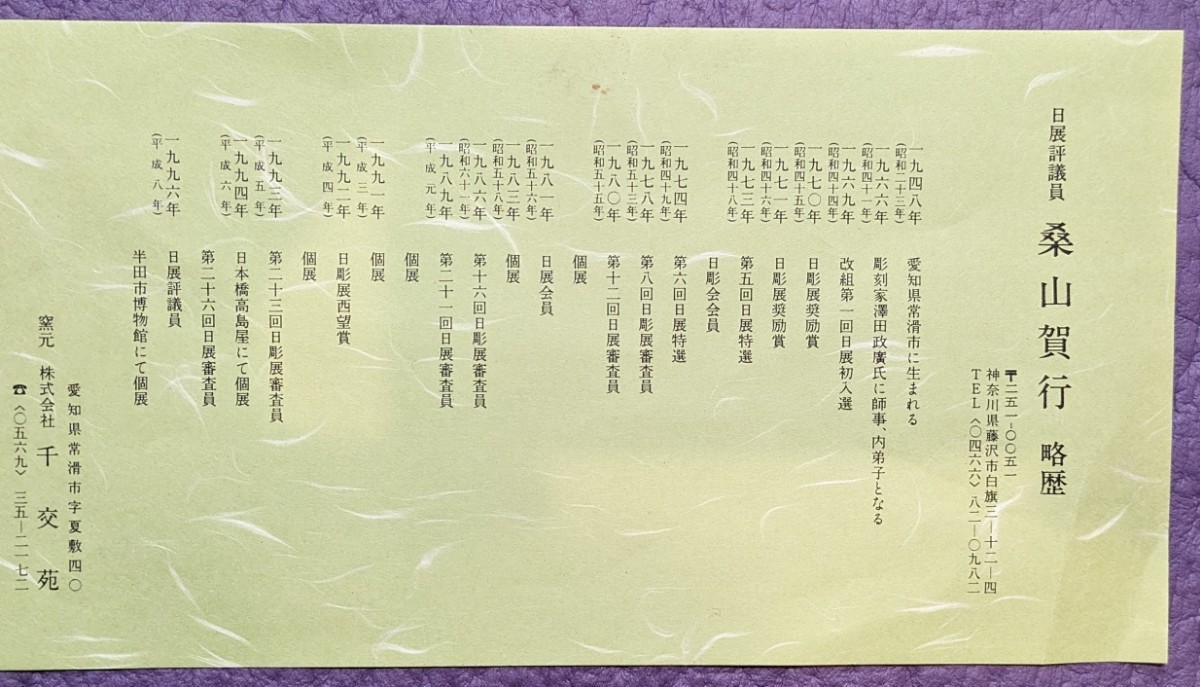 日展評議員 桑山賀行 略歴
〒二五一-〇〇五一
神奈川県藤沢市白旗三―十二―四
TEL〈〇四六六〉八二―〇九八二
一九四八年(昭和二十三年) 愛知県常滑市に生まれる
一九六六年(昭和四十一年) 彫刻家澤田政廣氏に師事、内弟子となる
一九六九年(昭和四十四年) 改組第一回日展初入選
一九七〇年(昭和四十五年) 日彫展奨励賞
一九七一年(昭和四十六年) 日彫展奨励賞
一九七三年(昭和四十八年) 第五回日展特選
日彫会会員
一九七四年(昭和四十九年) 第六回日展特選
一九七八年(昭和五十三年) 第八回日彫展審査員
一九八〇年(昭和五十五年) 第十二回日展審査員
個展
一九八一年(昭和五十六年) 日展会員
一九八三年(昭和五十八年) 個展
一九八六年(昭和六十一年) 第十六回日彫展審査員
一九八九年(平成元年) 第二十一回日展審査員
個展
一九九一年(平成三年) 個展
一九九二年(平成四年) 日彫展西望賞
個展
一九九三年(平成五年) 第二十三回日彫展審査員
一九九四年(平成六年) 日本橋高島屋にて個展
第二十六回日展審査員
一九九六年(平成八年) 日展評議員
半田市博物館にて個展
愛知県常滑市字夏敷四〇
窯元 株式会社 千交苑
☎〈〇五六九〉三五―二一七二